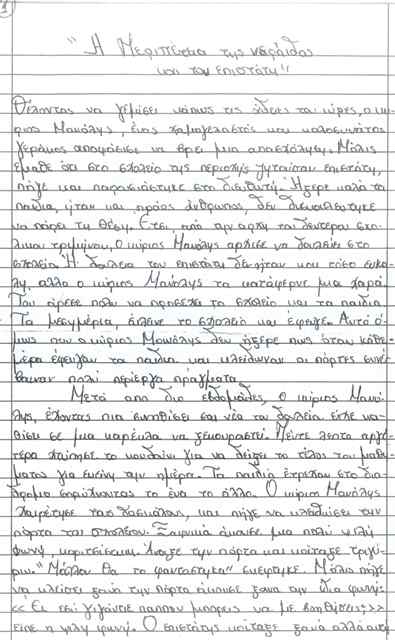 1)
"Η Περιπέτεια της νεράιδας
και του επιστάτη"
Θέλοντας να γεμίσει κάπως τις άδειες του ώρες, ο κύ-
ριος Μανόλης, ένας χαμογελαστός και καλοσυνάτος
γεράκος αποφάσισε να βρει μια απασχόληση. Μόλις
έμαθε ότι στο σχολείο της περιοχής ζητούσαν επιστάτη,
πήγε και παρουσιάστηκε στο διευθυντή. Ήξερε καλά τα
παιδιά, ήταν και πράος άνθρωπος, δεν δυσκολεύτηκε
να πάρει τη θέση. Έτσι, από την αρχή του δεύτερου σχο-
λικού τριμήνου, ο κύριος Μανόλης άρχισε να δουλεύει στο
σχολείο. Η δουλειά του επιστάτη δεν ήταν και τόσο εύκο-
λη, αλλά ο κύριος Μανόλης τα κατάφερνε μια χαρά.
Του άρεσε πολύ να προσέχει το σχολείο και τα παιδιά.
Τα μεσημέρια, έκλεινε το σχολείο και έφευγε. Αυτό ό-
μως που ο κύριος Μανόλης δεν ήξερε πως όταν κάθε
μέρα έφευγαν τα παιδιά και κλείδωναν οι πόρτες συνέ-
βαιναν πολύ περίεργα πράγματα.
Μετά από δυο εβδομάδες, ο κύριος Μανό-
λης, έχοντας πια συνηθίσει στη νέα του δουλειά, είπε να κα-
θίσει σε μια καρέκλα να ξεκουραστεί. Πέντε λεπτά αργό-
τερα χτύπησε το κουδούνι για να δείξει το τέλος του μαθή-
ματος για εκείνη την ημέρα. Τα παιδιά έτρεχαν στο διά-
δρομο σπρώχνοντας το ένα το άλλο. Ο κύριος Μανόλης
χαιρέτησε τους δασκάλους, και πήγε να κλειδώσει την
πόρτα του σχολείου. Ξαφνικά άκουσε μια πολύ ψιλή
φωνή, κοριτσίστικη. Άνοιξε την πόρτα και κοίταξε τριγύ-
ρω. "Μάλλον θα το φαντάστηκα" σκέφτηκε. Μόλις πήγε
να κλείσει ξανά την πόρτα άκουσε ξανά την ίδια φωνή:
<< Ει εσύ γίγαντα παππού μπορείς να με βοηθήσεις; >>
είπε η ψιλή φωνή. Ο επιστάτης κοίταξε ξανά αλλά αυτή